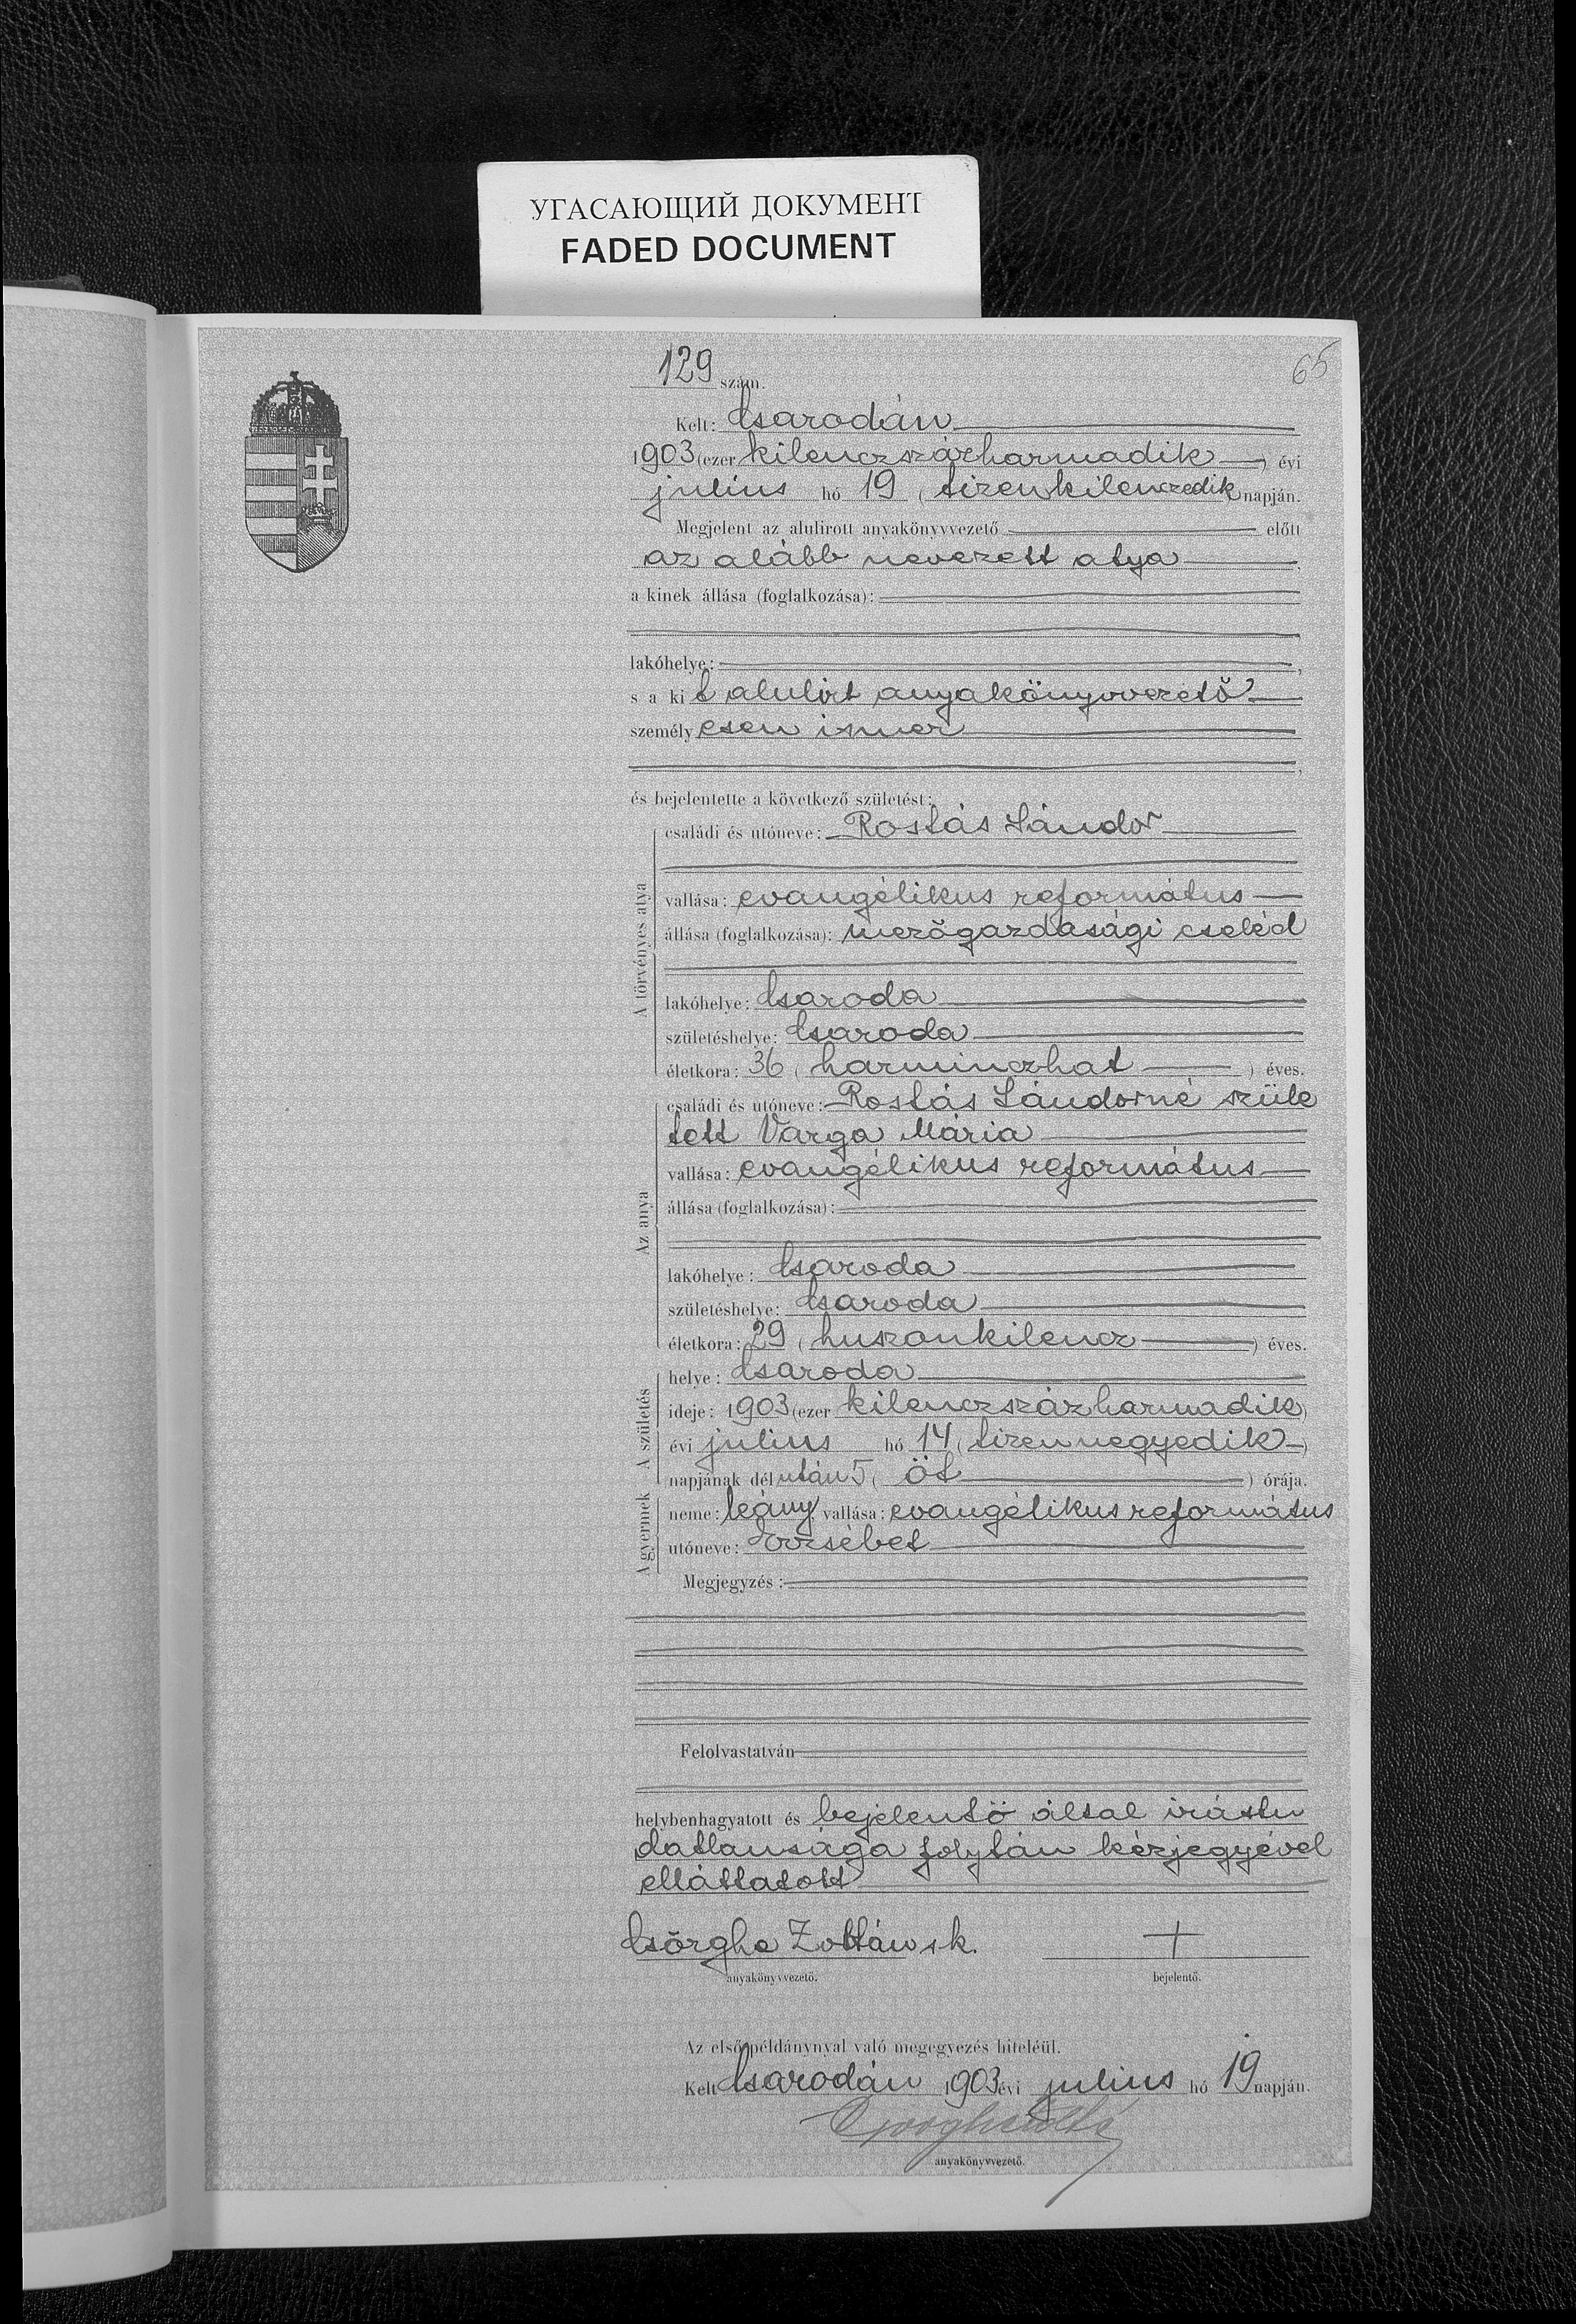 УГАСАЮЩИЙ ДОКУМЕНТ
FADED DOCUMENT
65
129 szám.
Kelt: Csarodán
1903 (ezer kilenczszázharmadik) évi
julius hó 19 (tizenkilenczedik) napján.
Megjelent az alulirott anyakönyvvezető előtt
az alább nevezett atya
a kinek állása (foglalkozása):
lakóhelye:
s a kit alulirt anyakönyvvezető
személyesen ismer
és bejelentette a következő születést:
A törvényes atya
családi és utóneve: Rostás Sándor
vallása: evangélikus református
állása (foglalkozása): mezőgazdasági cseléd
lakóhelye: Csaroda
születéshelye: Csaroda
életkora: 36 (harminczhat) éves.
Az anya
családi és utóneve: Rostás Sándorné szüle
tett Varga Mária
vallása: evangélikus református
állása (foglalkozása):
lakóhelye: Csaroda
születéshelye: Csaroda
életkora: 29 (huszonkilencz) éves.
A születés
helye: Csaroda
ideje: 1903 (ezer kilenczszázharmadik)
évi julius hó 14 (tizennegyedik)
napjának délután 5 (öt) órája.
A gyermek
neme: leány, vallása: evangélikus református
utóneve: Erzsébet
Megjegyzés:
Felolvastatván
helybenhagyatott és bejelentő által irástu
datlansága folytán kézjegyével
elláttatott
Csörgha Zoltán s.k. +
anyakönyvvezető. bejelentő.
Az első példánynyal való megegyezés hiteléül.
Kelt Csarodán 1903 évi julius hó 19 napján.
anyakönyvvezető.